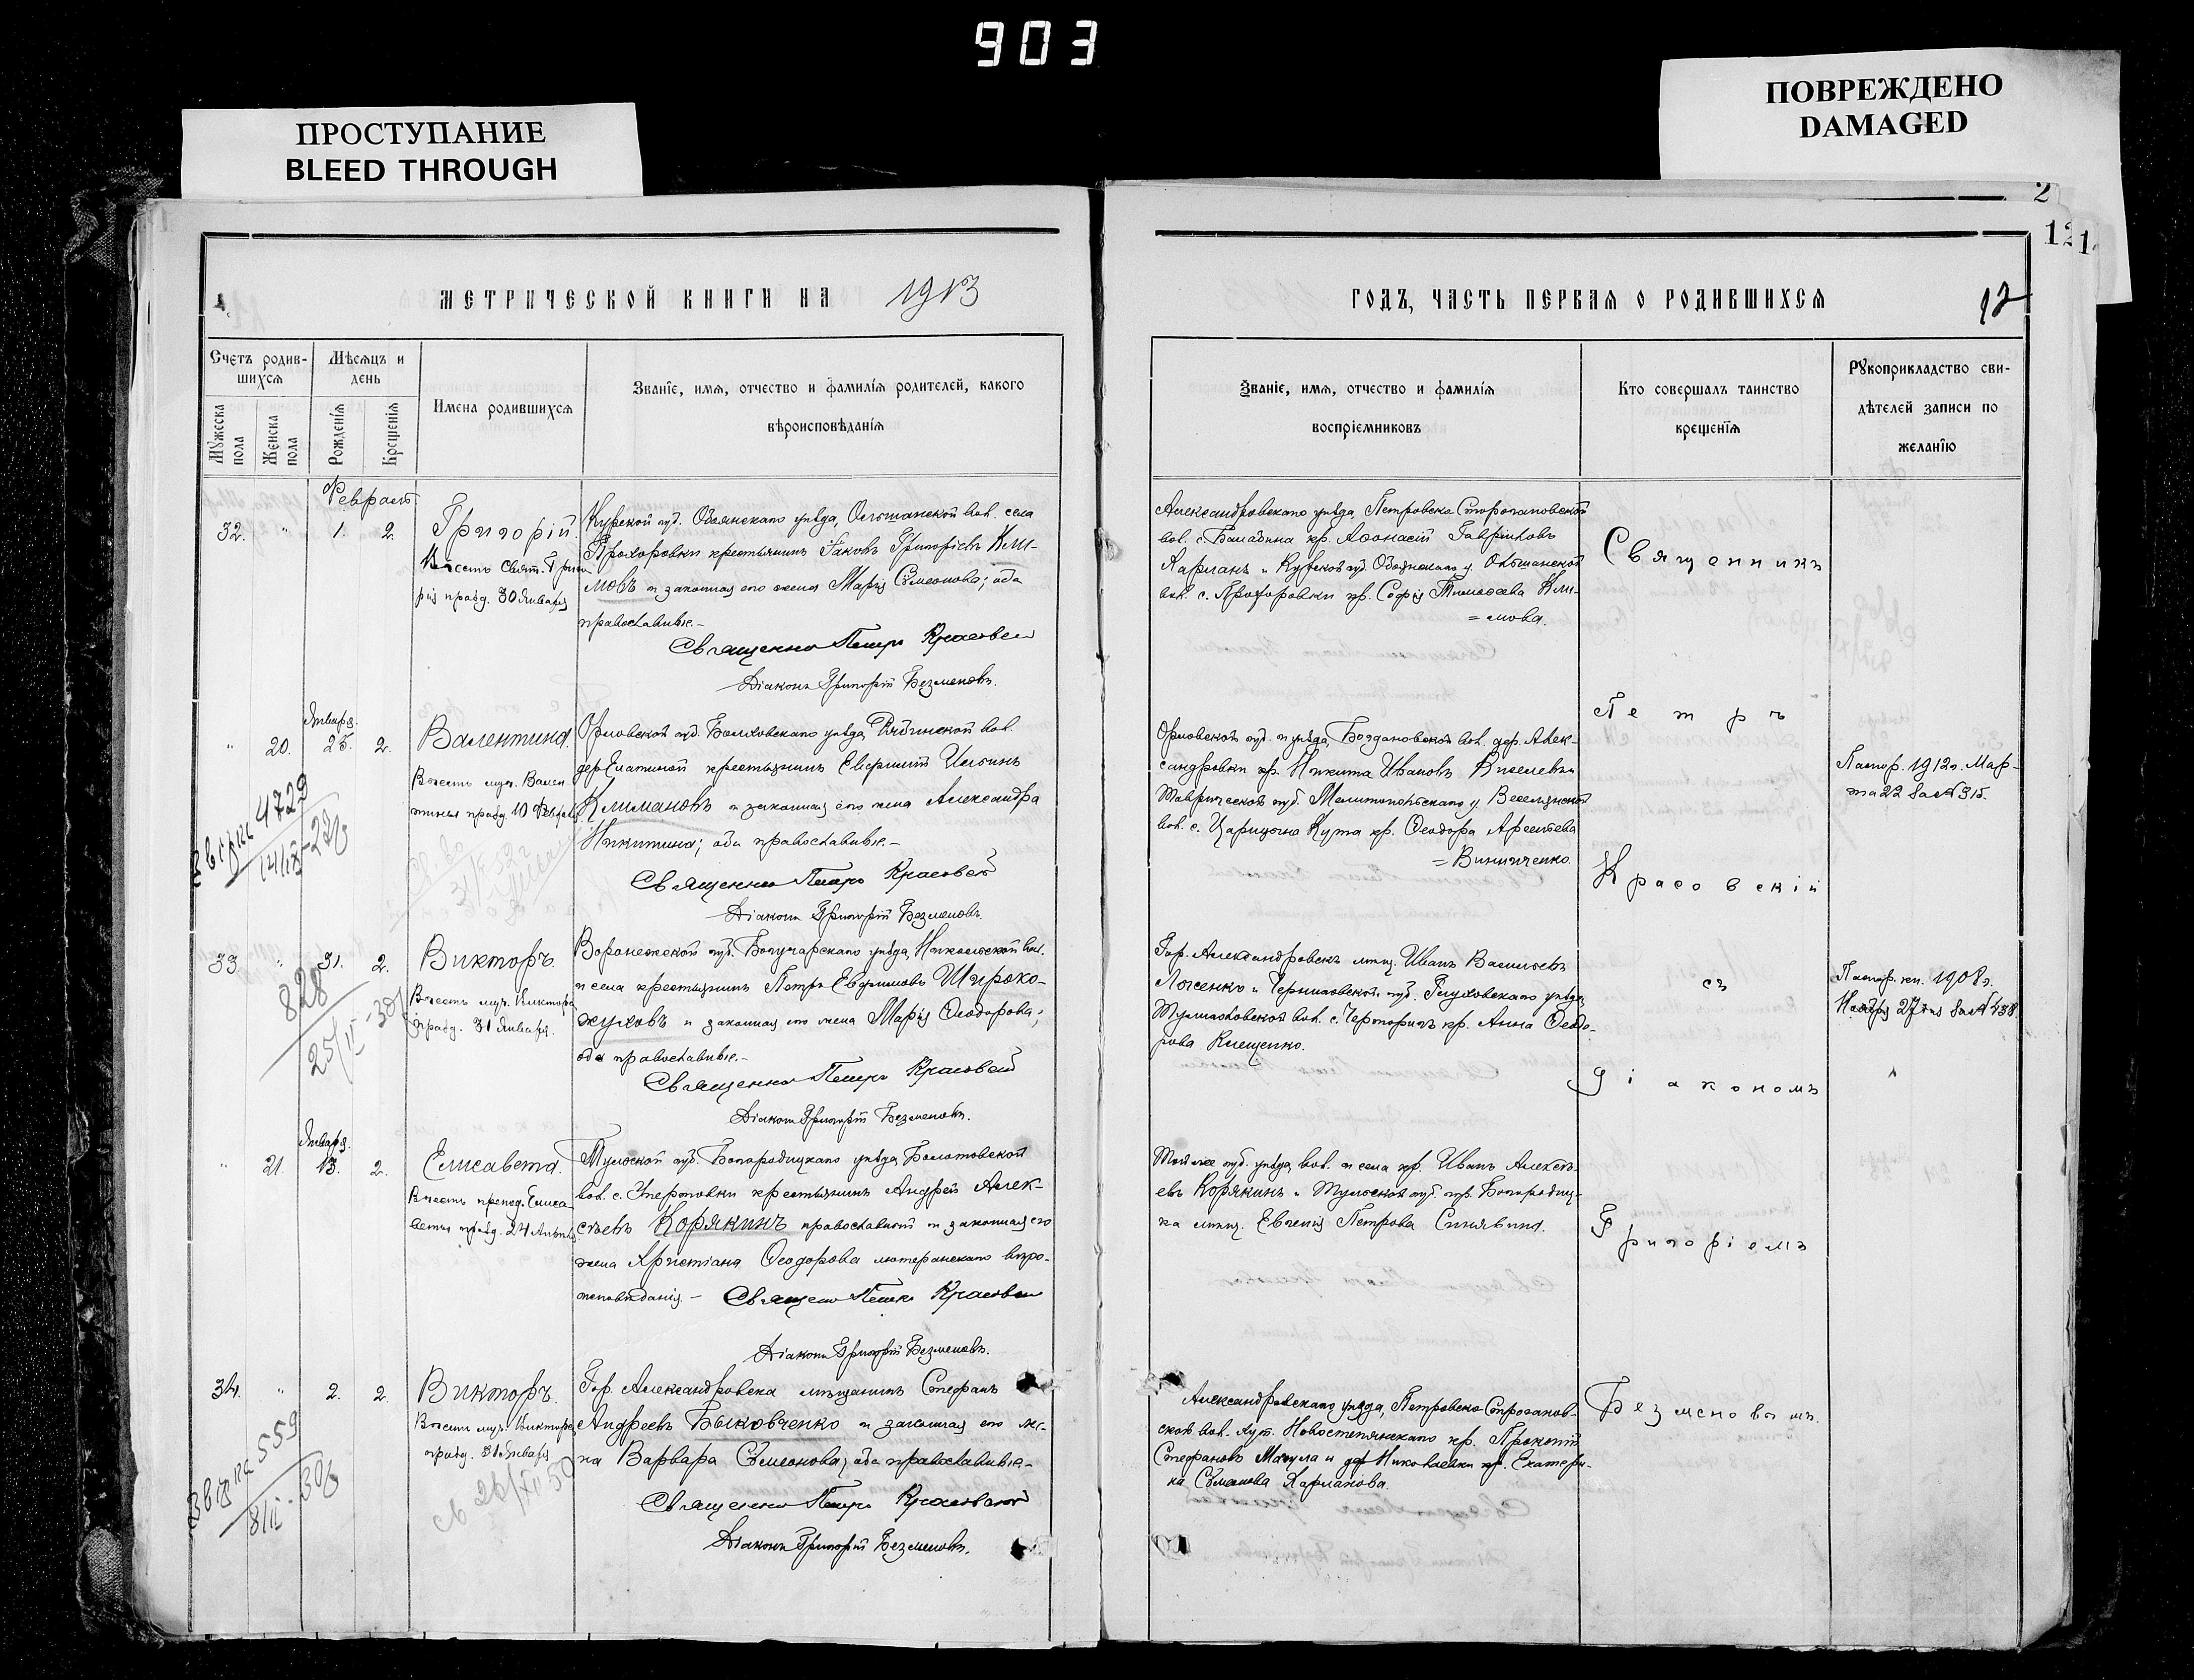 903
ПРОСТУПАНИЕ
BLEED THROUGH
ПОВРЕЖДЕНО
DAMAGED
2
121
МЕТРИЧЕСКОЙ КНИГИ НА 1913
ГОДЪ, ЧАСТЬ ПЕРВАЯ О РОДИВШИХСЯ
12
Счетъ родив-
шихся
Мужеска пола
Женска пола
Мѣсяцъ и
день
Рожденія
Крещенія
Имена родившихся
Званіе, имя, отчество и фамилія родителей, какого
вѣроисповѣданія
Званіе, имя, отчество и фамилія
воспріемниковъ
Кто совершалъ таинство
крещенія
Рукоприкладство сви-
дѣтелей записи по
желанію
Февраль
32. " 1. 2.
Григорій.
Въ честь Свят. Григо
рія празд. 30 Января
Курской губ. Обоянскаго уѣзда, Ольшанской вол. села
Прохоровки крестьянинъ Іаковъ Григоріевъ Кли-
мовъ и законная его жена Марія Сѵмеонова; оба
православные.-
Священникъ Петръ Красовскій
Діаконъ Григорій Безменовъ.
Александровскаго уѣзда, Петровско-Строгановской
вол. с. Балабина кр. Аѳонасій Гавріиловъ
Харланъ и Курской губ. Обоянскаго у. Ольшанской
вол. с. Прохоровки кр. Софія Тимоѳеева Кли-
= мова.
Января.
" 20. 25. 2.
Валентина.
Въ честь муч. Вален
тины празд. 10 Февраля
Орловской губ. Болховскаго уѣзда,
дер. крестьянинъ Евфимій Ильинъ
Климановъ и законная его жена Александра
Никитина; оба православные.-
Священникъ Петръ Красовскій
Діаконъ Григорій Безменовъ.
Орловской губ. и уѣзда, Богдановской вол. дер. Алек-
сандровки кр. Никита Ивановъ Киселевъ и
Таврической губ. Мелитопольскаго у. Веселянской
вол. с. Царицына Кута кр. Ѳеодора Арсеньева
= Винниченко.
Паспор. 1912 г. Мар-
та 22 за № 315.
4729
33. " 31. 2.
Викторъ.
Въ честь муч. Виктора
празд. 31 Января.
Воронежской губ. Богучарскаго уѣзда, Никольской вол.
и села крестьянинъ Петръ Евфимовъ Широко-
жуховъ и законная его жена Марія Ѳеодорова;
оба православные.-
Священникъ Петръ Красовскій
Діаконъ Григорій Безменовъ.
Гор. Александровскъ мѣщ. Иванъ Васильевъ
Логенко и Черниговской губ. Глуховскаго уѣзда
Тулиголовской вол. с. Черторигъ кр. Анна Ѳеодо-
рова Клещенко.
Паспор. кн. 1908 г.
Ноября 27 дня за № 438.
828
25/II
Января.
" 21. 13. 2.
Елисавета.
Въ честь препод. Елиса
веты празд. 24 Апрѣля
Тульской губ. Богородицкаго уѣзда, Болотовской
вол. с. крестьянинъ Андрей Алек-
сѣевъ Корякинъ православный и законная его
жена Христіана Ѳеодорова лютеранскаго вѣро-
исповѣданія.- Священникъ Петръ Красовскій
Діаконъ Григорій Безменовъ.
Той же губ. уѣзда, вол. и села кр. Иванъ Алексѣ-
евъ Корякинъ и Тульской губ. гор. Богородиц-
ка мѣщ. Евгенія Петрова Синявина.
34. " 2. 2.
Викторъ.
Въ честь муч. Виктора
празд. 31 Января.
Гор. Александровска мѣщанинъ Стефанъ
Андреевъ Быковченко и законная его же-
на Варвара Сѵмеонова; оба православные.-
Священникъ Петръ Красовскій
Діаконъ Григорій Безменовъ.
Александровскаго уѣзда, Петровско-Строганов-
ской вол. хут. Новостепнянскаго кр. Прокопій
Стефановъ Мацула и дер. Николаевки кр. Екатери-
на Сѵмеонова Харланова.
559
8/II
Священникъ
Петръ
Красовскій
съ
діакономъ
Григоріемъ
Безменовымъ.